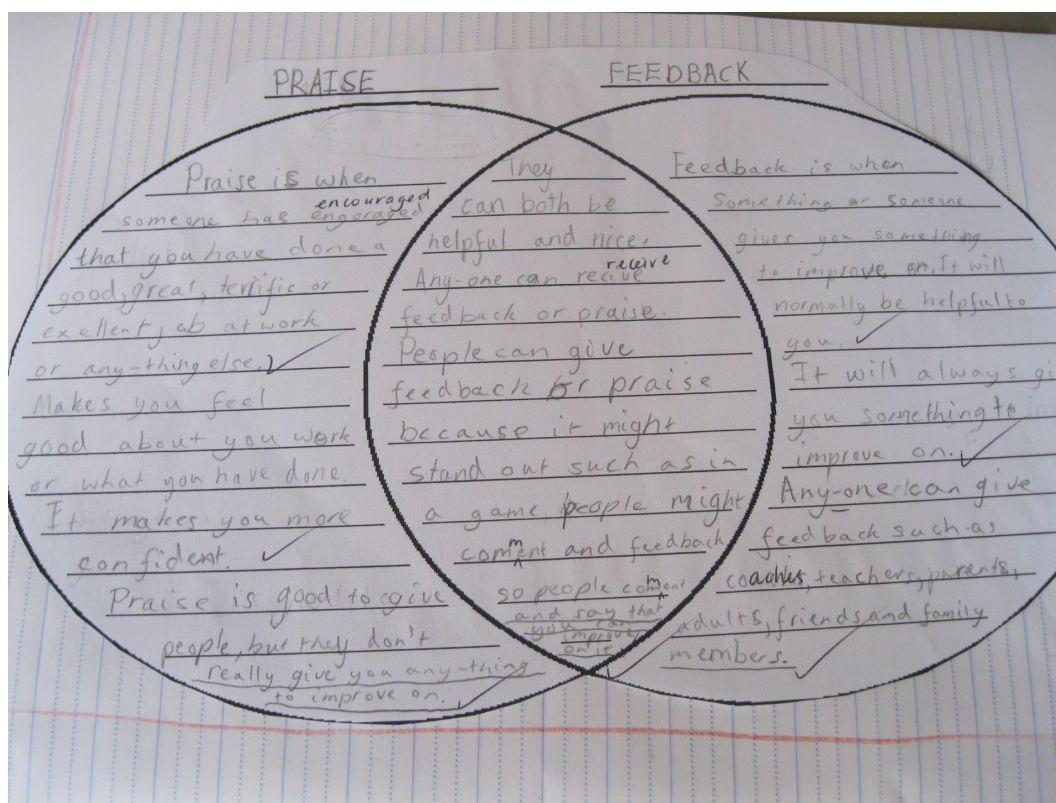 PRAISE
FEEDBACK
Praise is when
encouraged
someone has engoraged
that you have done a
good, great, terrific or
exellent job at work
or any-thing else.
Makes you feel
good about you work
or what you have done.
It makes you more
confident.
Praise is good to give
people, but they don't
really give you any-thing
to improve on.
They
can both be
helpful and nice.
receive
Any-one can recive
feedback or praise.
People can give
feedback or praise
because it might
stand out such as in
a game people might
comment and feedback
so people comment
and say that
you can
improve
on it
Feedback is when
something or someone
gives you something
to improve on. It will
normally be helpful to
you.
It will always gi
you something to
improve on.
Any-one can give
feedback such as
coaches, teachers, parents,
adults, friends and family
members.